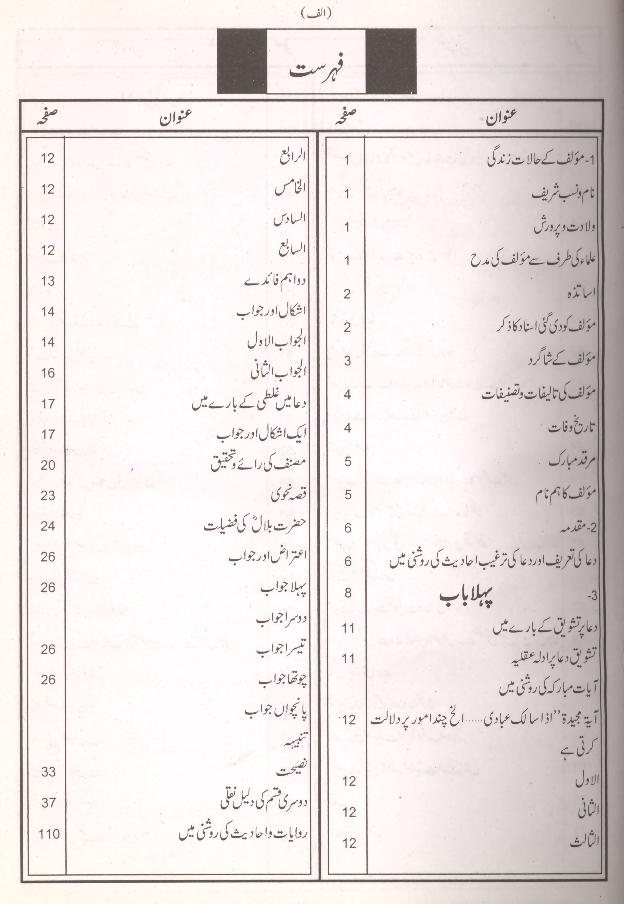 (الف)
فہرست
عنوان صفحہ
1- مؤلف کے حالات زندگی 1
نام ونسب شریف 1
ولادت و پرورش 1
علماء کی طرف سے مؤلف کی مدح 1
اساتذہ 2
مؤلف کو دی گئی اسناد کا ذکر 2
مؤلف کے شاگرد 3
مؤلف کی تالیفات و تصنیفات 4
تاریخ وفات 4
مرقد مبارک 5
مؤلف کا ہم نام 5
2- مقدمہ 6
دعا کی تعریف اور دعا کی ترغیب احادیث کی روشنی میں 6
3- پہلا باب 8
دعا پر تشویق کے بارے میں 11
تشویق دعا پر ادلہ عقلیہ 11
آیات مبارکہ کی روشنی میں
آیۃ مجیدۃ "اذا سالک عبادی......الخ چند امور پر دلالت 12
کرتی ہے
الاول 12
الثانی 12
الثالث 12
عنوان صفحہ
الرابع 12
الخامس 12
السادس 12
السابع 12
دو اہم فائدے 13
اشکال اور جواب 14
الجواب الاول 14
الجواب الثانی 16
دعا میں غلطی کے بارے میں 17
ایک اشکال اور جواب 17
مصنف کی رائے و تحقیق 20
قصہ نحوی 23
حضرت بلالؓ کی فضیلت 24
اعتراض اور جواب 26
پہلا جواب 26
دوسرا جواب
تیسرا جواب 26
چوتھا جواب 26
پانچواں جواب
تنبیہہ
نصیحت 33
دوسری قسم کی دلیل نقلی 37
روایات و احادیث کی روشنی میں 110